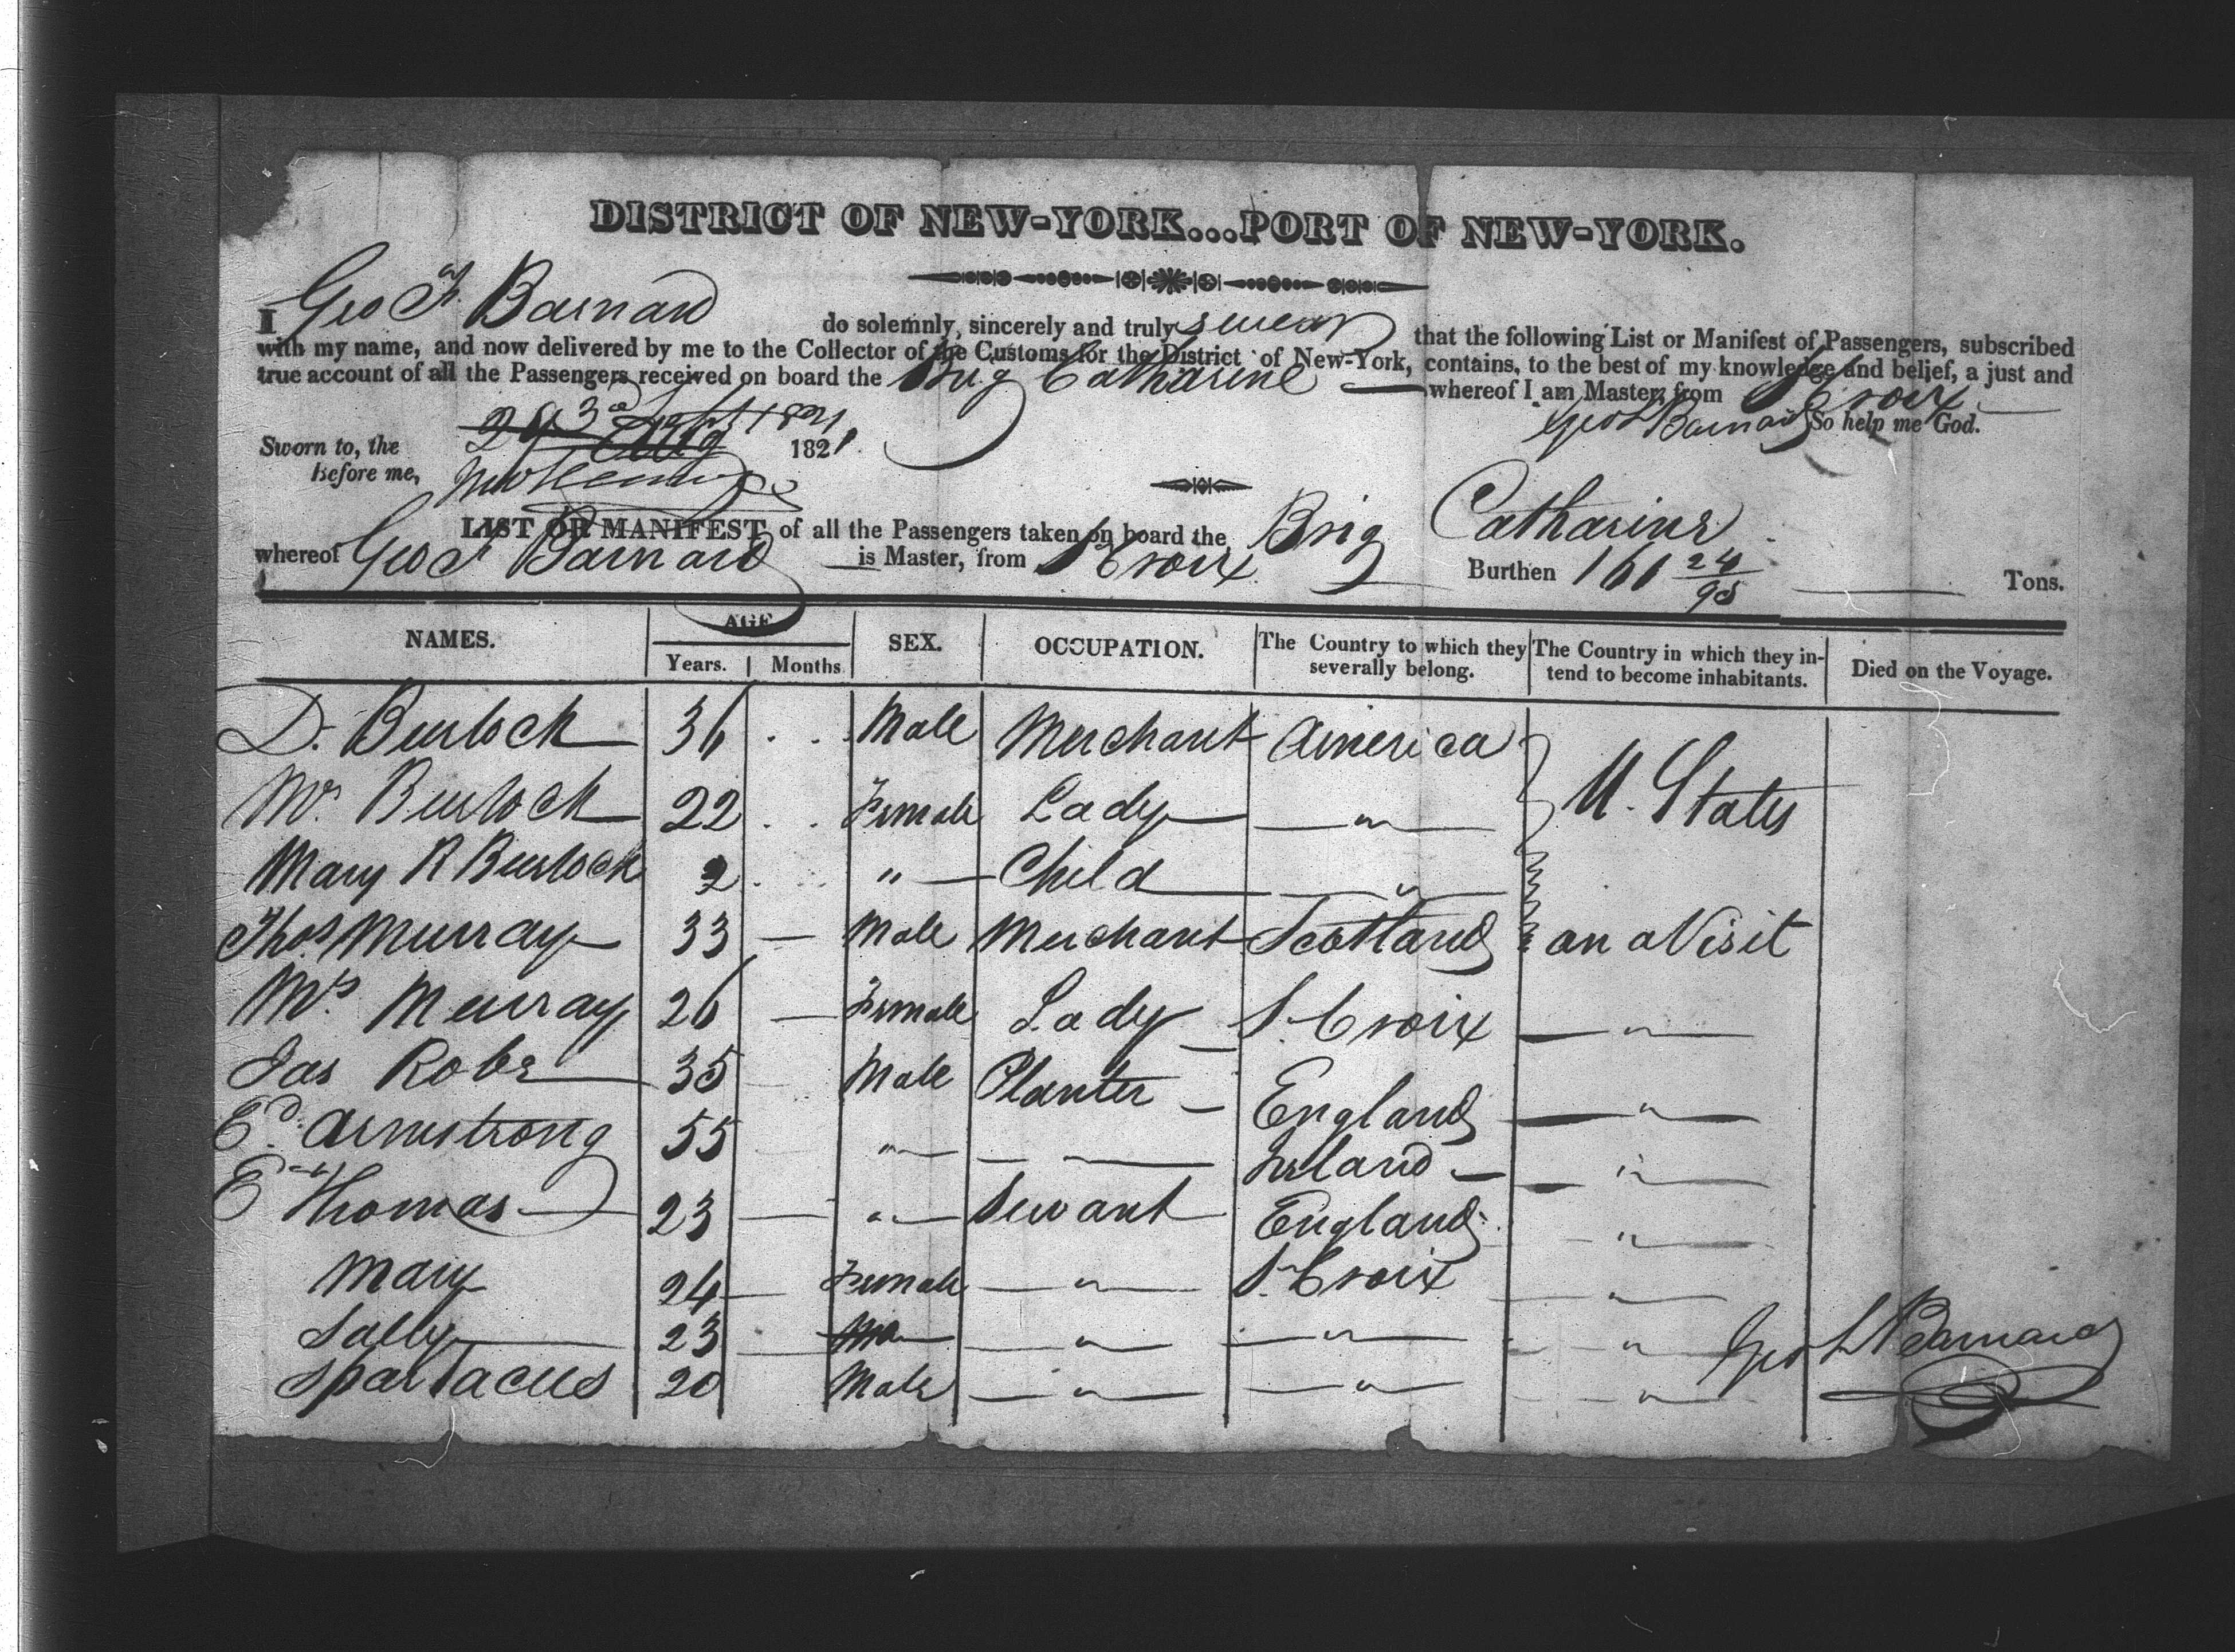 DISTRICT OF NEW-YORK...PORT OF NEW-YORK.
I Geo Barnard do solemnly, sincerely and truly swear that the following List or Manifest of Passengers, subscribed
with my name, and now delivered by me to the Collector of the Customs for the District of New-York, contains, to the best of my knowledge and belief, a just and
true account of all the Passengers received on board the Brig Catharine whereof I am Master, from St Croix
Geo Barnard So help me God.
3d Sept 1821
Sworn to, the 29 Aug 1821.
Before me,
LIST OR MANIFEST of all the Passengers taken on board the Brig Catharine
whereof Geo Barnard is Master, from St Croix Burthen 161 24/95 Tons.
NAMES. AGE SEX. OCCUPATION. The Country to which they severally belong. The Country in which they intend to become inhabitants. Died on the Voyage.
Years. Months
D. Burlock 36 . . Male Merchant America U. States
Mrs Burlock 22 . . Female Lady "
Mary R Burlock 2 . . " Child "
Thos Murray 33 Male Merchant Scotland on a Visit
Mrs Murray 26 Female Lady St Croix "
Jas Robr 35 Male Planter England "
Ed. Armstrong 55 " — Ireland "
Thomas 23 " Servant England "
Mary 24 Female " St Croix "
Sally 23 " " "
Spartacus 20 Male " " "
Geo Barnard